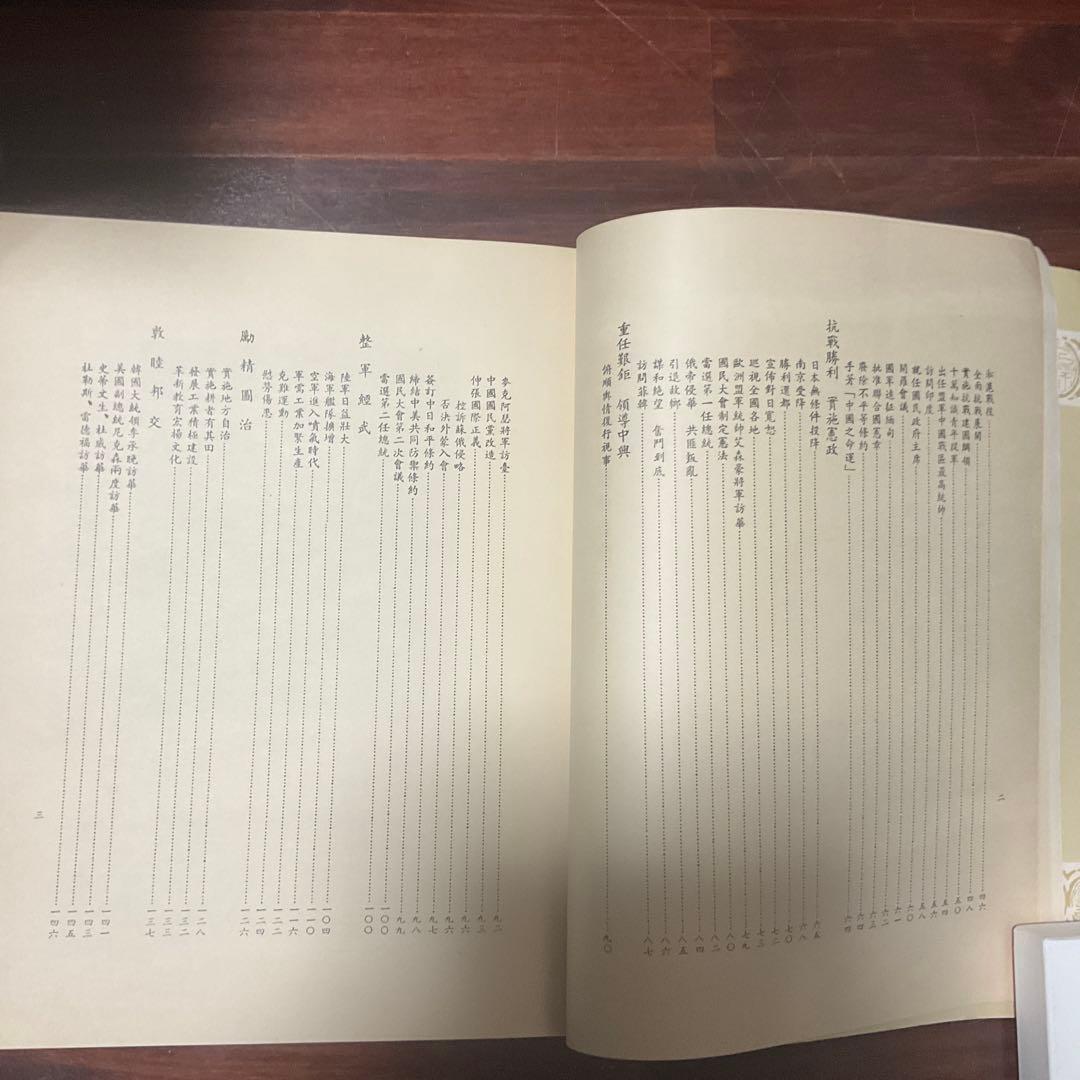 淞滬戰役 四六
全面抗戰展開 四八
實施抗戰建國綱領 五〇
十萬知識青年從軍 五四
出任盟軍中國戰區最高統帥
訪問印度 五六
就任國民政府主席 五八
開羅會議 六〇
國軍遠征緬甸 六一
批准聯合國憲章 六二
廢除不平等條約 六三
手著「中國之命運」 六四
抗戰勝利 實施憲政
日本無條件投降 六五
南京受降 六八
勝利還都 七〇
宣佈對日寬恕 七二
巡視全國各地 七三
歐洲盟軍統帥艾森豪將軍訪華 七九
國民大會制定憲法 八〇
當選第一任總統 八二
俄帝侵華 共匪叛亂 八四
引退故鄉 八五
謀和絕望 奮鬥到底 八六
訪問菲韓 八七
重任艱鉅 領導中興
俯順輿情復行視事 九〇
二
麥克阿瑟將軍訪臺 九二
中國國民黨改造 九三
伸張國際正義 九六
控訴蘇俄侵略 九六
否決外蒙入會 九七
簽訂中日和平條約 九八
締結中美共同防禦條約 九九
國民大會第二次會議 一〇〇
當選第二任總統 一〇〇
整軍經武
陸軍日益壯大 一〇四
海軍艦隊擴增 一一〇
空軍進入噴氣時代 一一六
軍需工業加緊生產 一二二
克難運動 一二四
慰勞傷患 一二六
勵精圖治
實施地方自治 一二八
實施耕者有其田 一三二
發展工業積極建設 一三三
革新教育宏揚文化 一三七
敦睦邦交
韓國大統領李承晚訪華 一四一
美國副總統尼克森兩度訪華 一四三
史蒂文生、杜威訪華 一四五
杜勒斯、雷德福訪華 一四六
三